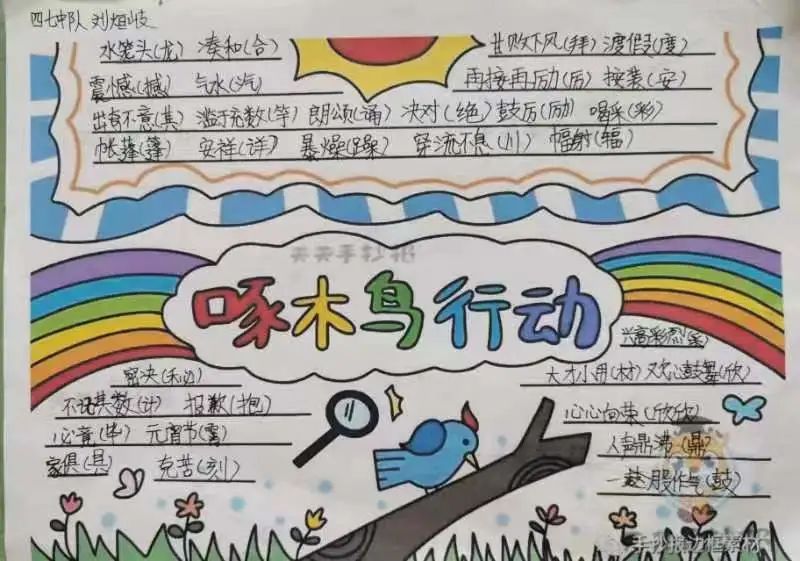 四七中队 刘烜岐
水笼头(龙) 凑和(合)
甘败下风(拜) 渡假(度)
震憾(撼) 气水(汽)
再接再励(厉) 按装(安)
出奇不意(其) 滥于充数(竽) 朗颂(诵) 决对(绝) 鼓厉(励) 喝采(彩)
帐蓬(篷) 安祥(详) 暴燥(躁) 穿流不息(川) 幅射(辐)
天天手抄报
啄木鸟行动
兴高彩烈(采)
密决(秘)
大才小用(材) 欢心鼓舞(欣)
不记其数(计) 报歉(抱)
心心向荣(欣欣)
必竟(毕) 元宵节(宵)
人声鼎沸(鼎)
家俱(具) 克苦(刻)
一股作气(鼓)
手抄报边框素材